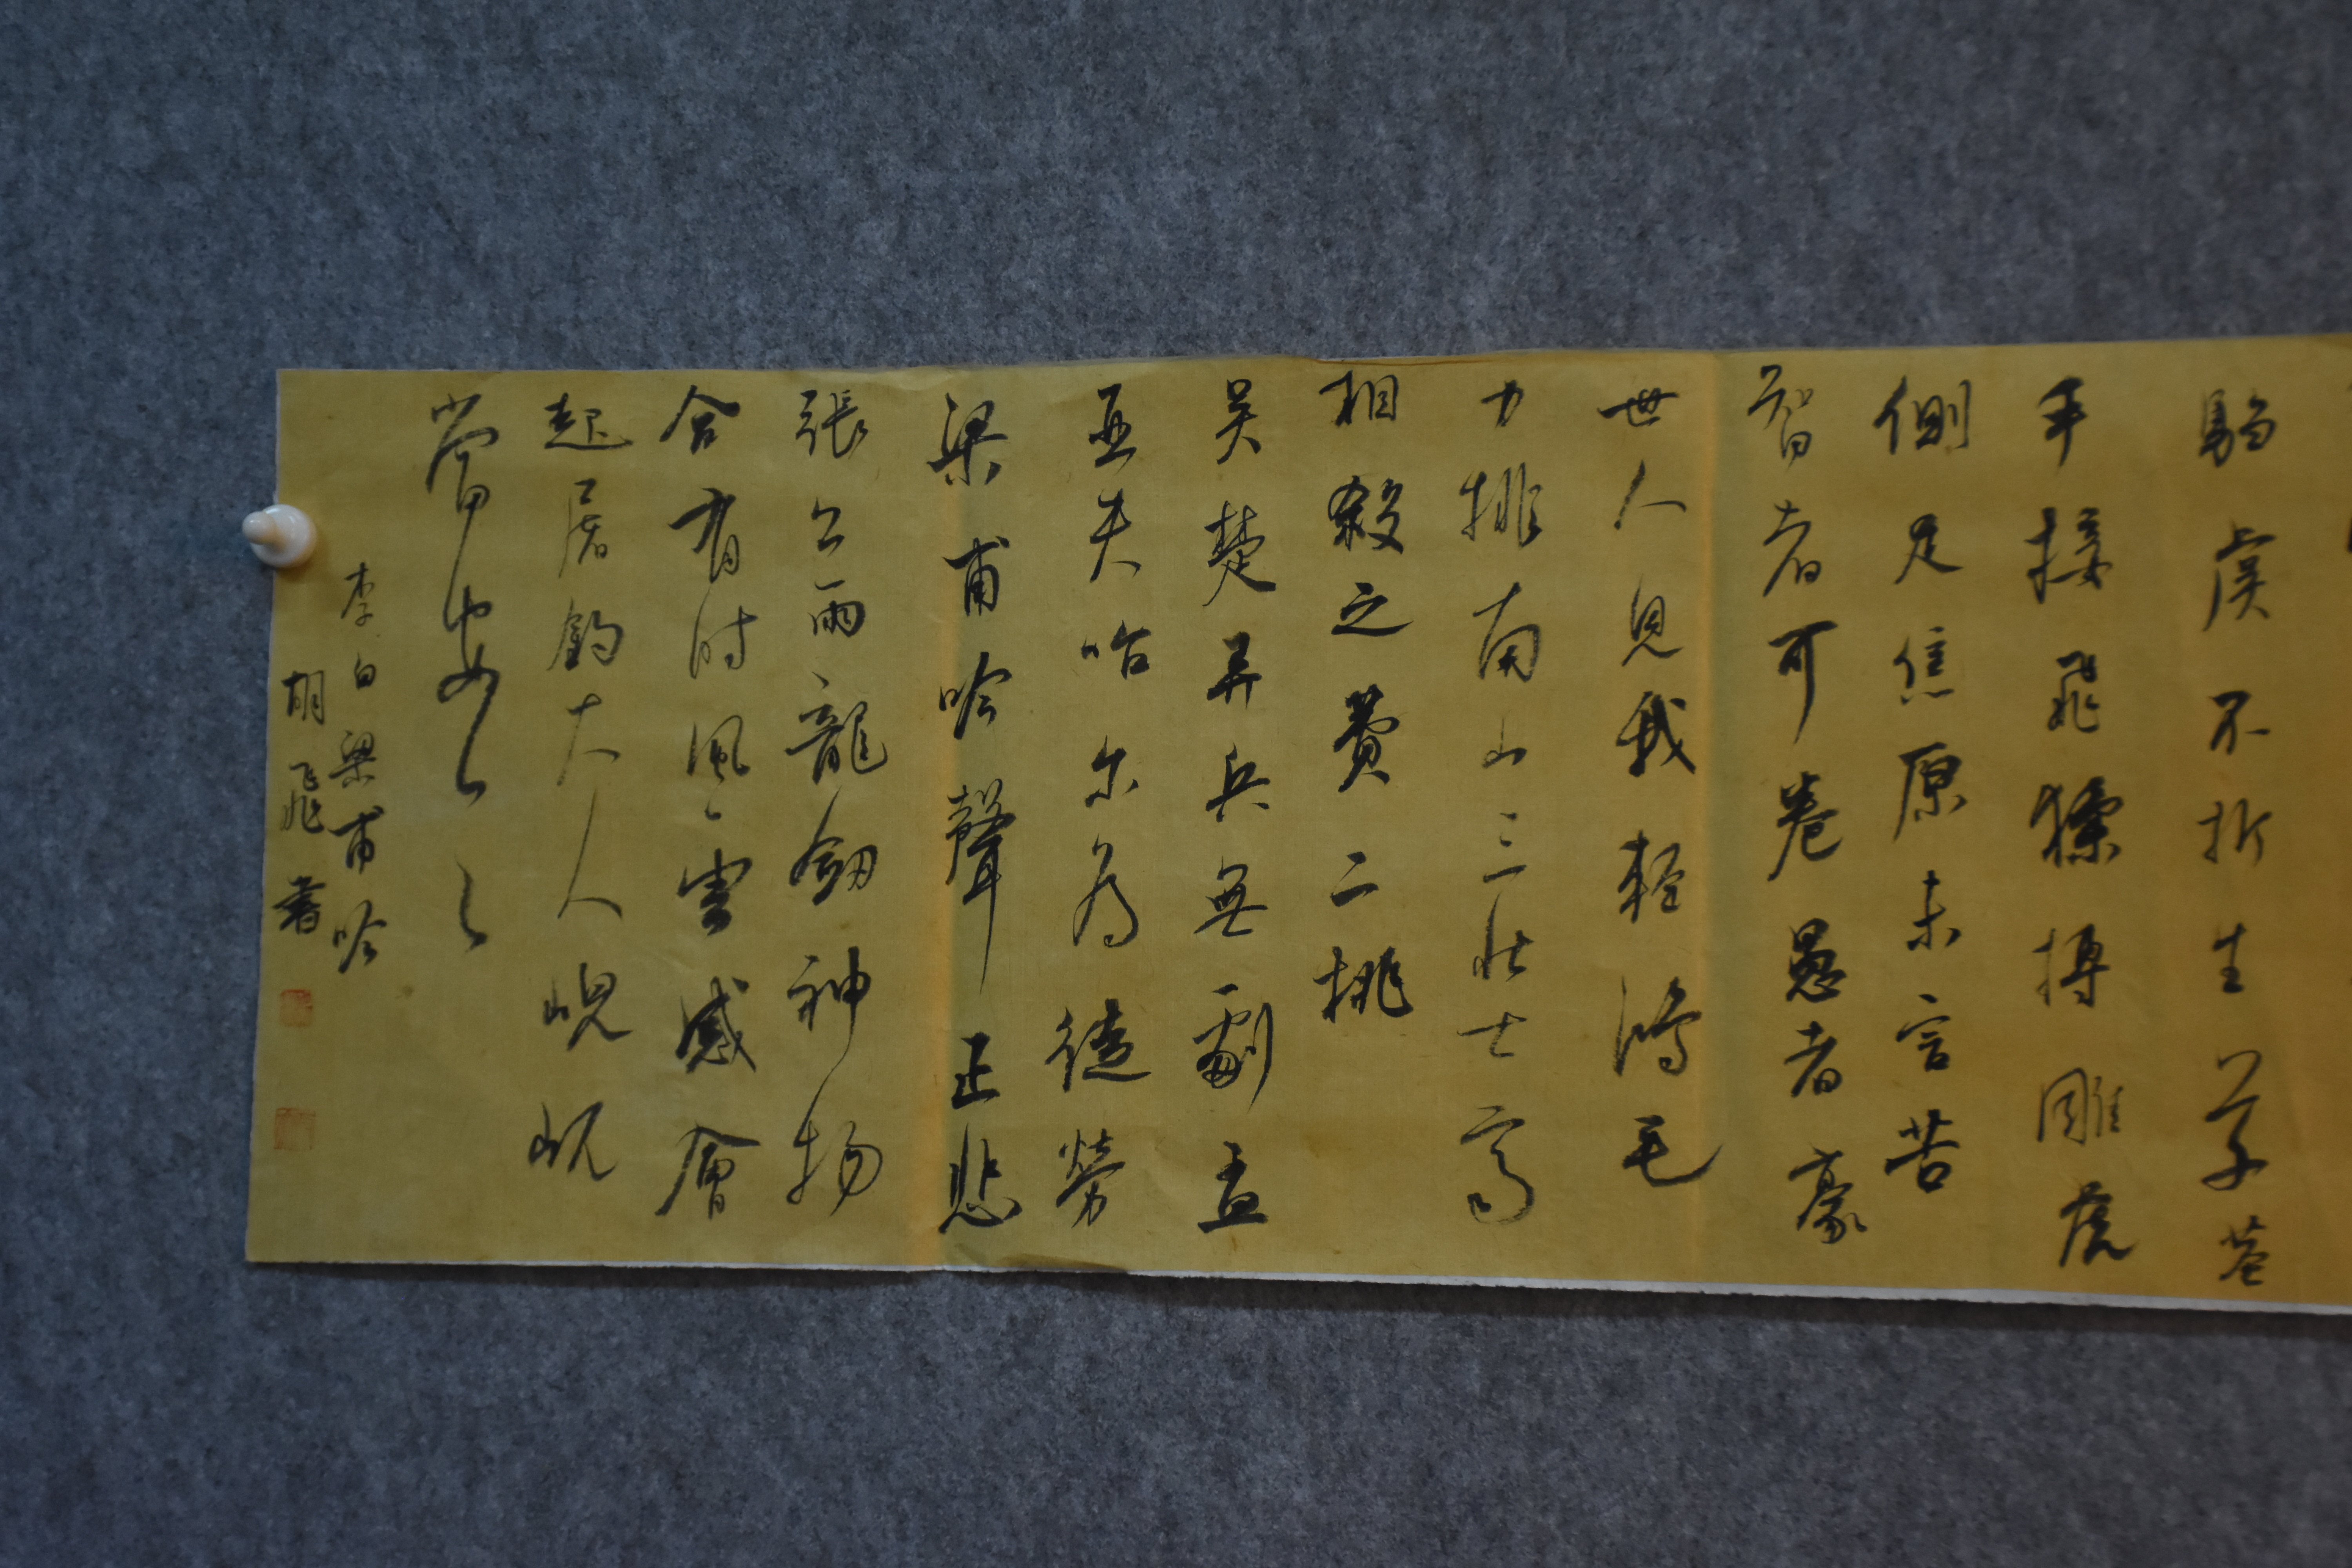 騶虞不折生草莖
手接飛猱搏雕虎
側足焦原未言苦
智者可卷愚者豪
世人見我輕鴻毛
力排南山三壯士齊
相殺之費二桃
吳楚弄兵無劇孟
亞夫咍尔為徒勞
梁甫吟聲正悲
張公兩龍劍神物
合有时風雲感會
起屠釣大人峴屼
當安之
李白梁甫吟
胡飛書